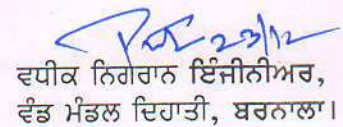 23/12
ਵਧੀਕ ਨਿਗਰਾਨ ਇੰਜੀਨੀਅਰ,
ਵੰਡ ਮੰਡਲ ਦਿਹਾਤੀ, ਬਰਨਾਲਾ।